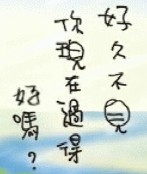 好久不見
你現在過得
好嗎?